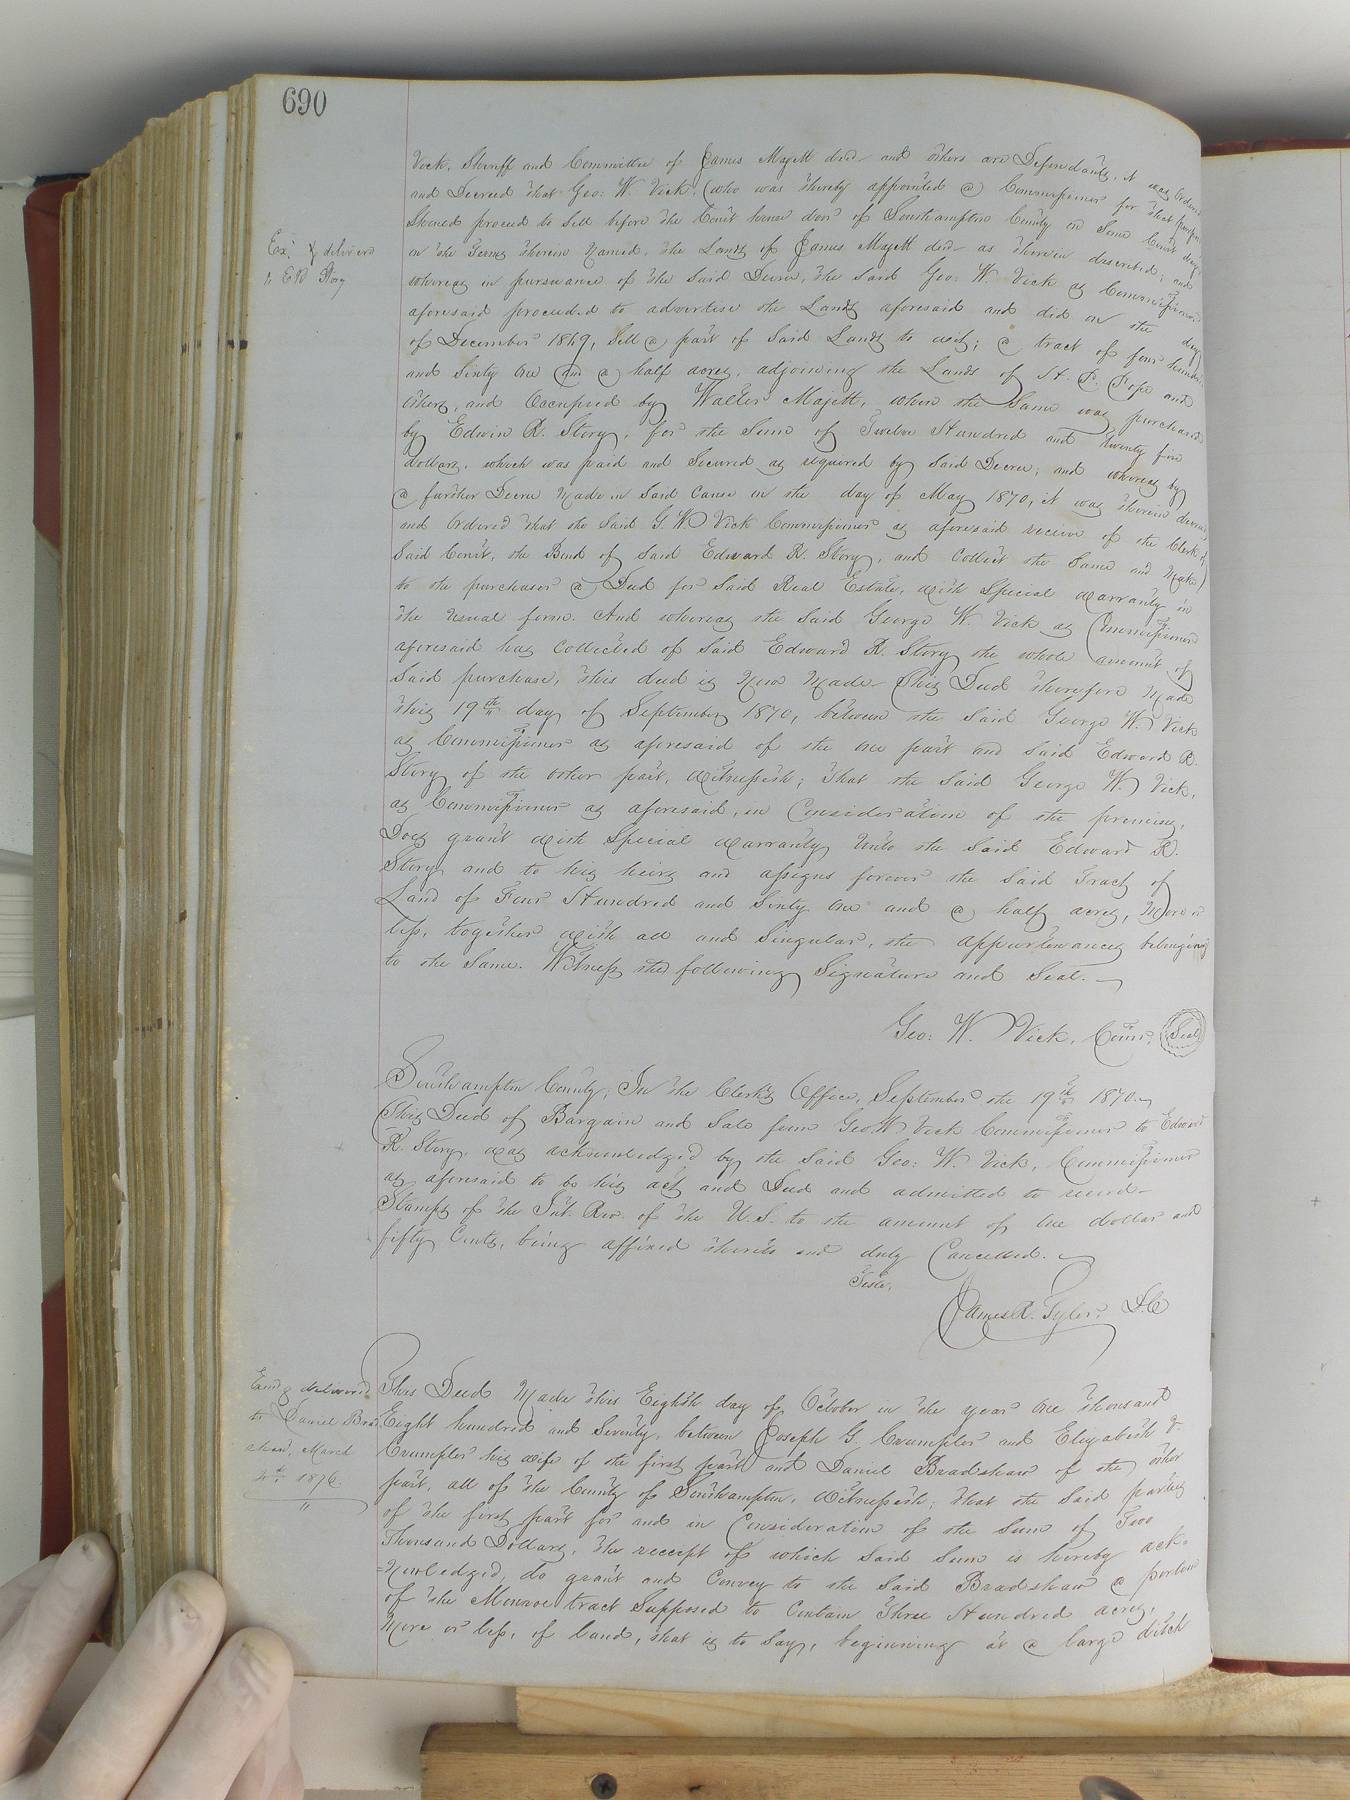 690
Vick, Sheriff and Committee of James Majett decd and others are Defendants, it was Ordered
and Decreed that Geo: W Vick, (who was thereby appointed a Commissioner for that purpose
Should proceed to Sell before the Court house door of Southampton County on Some Court day
on the Terms therein Named, the Lands of James Majett decd as therein described; and
Ex'd & delivered
to E R Story
whereas in pursuance of the Said Decree, the Said Geo: W. Vick as Commissioner
aforesaid proceeded to advertise the Lands aforesaid and did on the day
of December 1869, Sell a part of Said Lands to wit; a tract of four hundred
and Sixty One and a half acres, adjoining the Lands of H. P. Pope and
Others, and Occupied by Walter Majett, when the Same was purchased
by Edwin R. Story, for the Sum of Twelve Hundred and twenty five
dollars, which was paid and Secured as required by Said Decree; and whereas by
a further Decree Made in Said Cause in the day of May 1870, it was therein decreed
and Ordered that the Said G. W Vick Commissioner as aforesaid receive of the Clerk of
Said Court, the Bond of Said Edward R. Story, and Collect the Same and Make
to the purchaser a Deed for Said Real Estate, with Special warranty in
the usual form. And whereas the Said George W. Vick as Commissioner
aforesaid has Collected of Said Edward R. Story the whole amount of
Said purchase, this deed is Now Made- This Deed therefore Made
this 19th day of September 1870, between the Said George W. Vick
as Commissioner as aforesaid of the One part and Said Edward R.
Story of the other part, Witnesseth; that the Said George W. Vick,
as Commissioner as aforesaid, in Consideration of the premises,
Does grant with Special warranty Unto the Said Edward R.
Story and to his heirs and assigns forever the Said Tract of
Land of Four Hundred and Sixty One and a half acres, More or
less, together with all and Singular, the appurtenances belonging
to the Same. Witness the following Signature and Seal.
Geo: W. Vick, Comr. Seal
Southampton County; In the Clerk's Office, September the 19th 1870.
This Deed of Bargain and Sale from Geo. W Vick Commissioner to Edward
R. Story, was acknowledged by the Said Geo: W. Vick, Commissioner
as aforesaid to be his act and Deed and admitted to record-
Stamps of the Int. Rev. of the U.S. to the amount of One dollar and
fifty Cents, being affixed thereto and duly Cancelled.
Teste,
James R. Tyler, D.C
Exd & delivered
to Daniel Brad
shaw, March
4th 1876.
This Deed Made this Eighth day of October in the year One thousand
Eight hundred and Seventy, between Joseph G. Crumpler and Elizabeth F.
Crumpler his wife of the first part and Daniel Bradshaw of the other
part, all of the County of Southampton, Witnesseth; that the Said parties
of the first part for and in Consideration of the Sum of Two
Thousand Dollars, the receipt of which Said Sum is hereby ack=
=nowledged, do grant and Convey to the Said Bradshaw a portion
of the Monroe tract Supposed to Contain Three Hundred acres,
More or less, of land, that is to Say, beginning at a large ditch